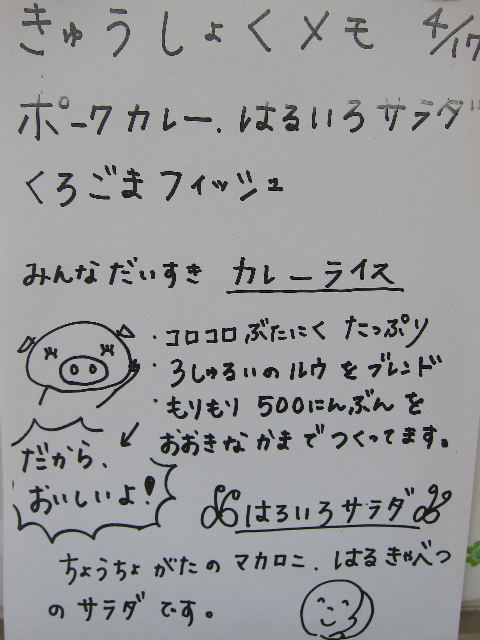 きゅうしょくメモ 4/17
ポークカレー、はるいろサラダ
くろごまフィッシュ
みんなだいすき カレーライス
・コロコロぶたにく たっぷり
・3しゅるいのルウをブレンド
・もりもり500にんぶんを
おおきなかまでつくってます。
だから、
おいしいよ!
はるいろサラダ
ちょうちょがたのマカロニ、はるきゃべつ
のサラダです。